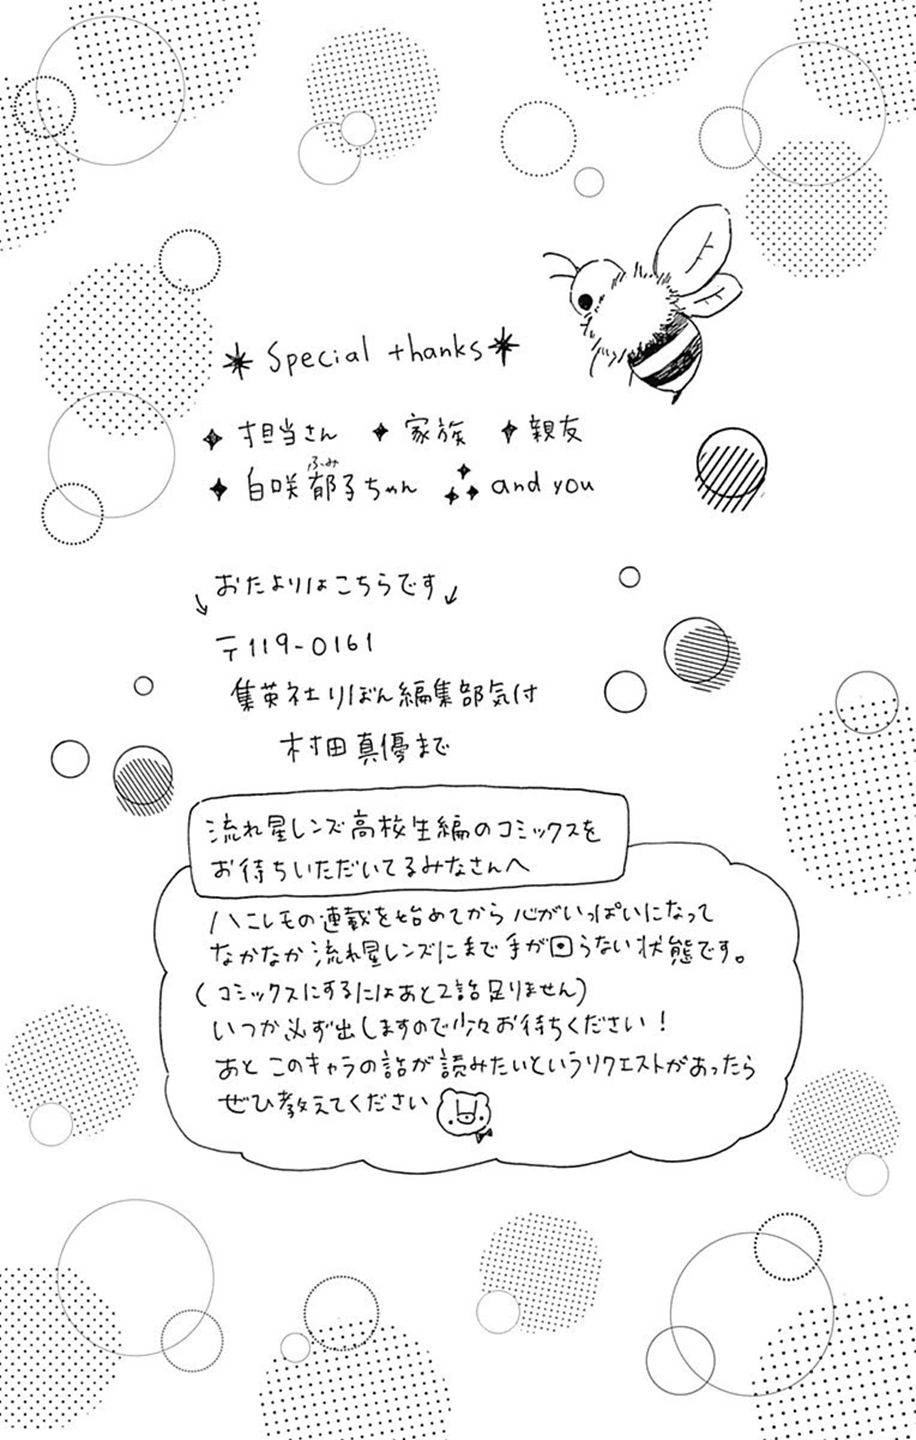 * Special thanks *
✦ 担当さん ✦ 家族 ✦ 親友
✦ 白咲郁子ちゃん ✦✦✦ and you
ふみ
おたよりはこちらです
〒119-0161
集英社りぼん編集部気付
村田真優まで
流れ星レンズ高校生編のコミックスを
お待ちいただいてるみなさんへ
ハニレモの連載を始めてから心がいっぱいになって
なかなか流れ星レンズにまで手が回らない状態です。
(コミックスにするにはあと2話足りません)
いつか必ず出しますので少々お待ちください!
あとこのキャラの話が読みたいというリクエストがあったら
ぜひ教えてください